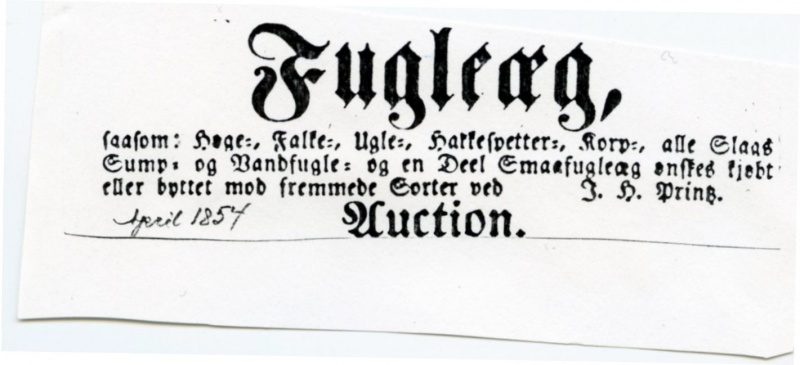 Fugleæg,
saasom: Høge-, Falke-, Ugle-, Hakkespetter-, Korp-, alle Slags
Sump- og Vandfugle- og en Deel Smaafugleæg ønskes kjøbt
eller byttet mod fremmede Sorter ved J. H. Printz.
April 1854 Auction.